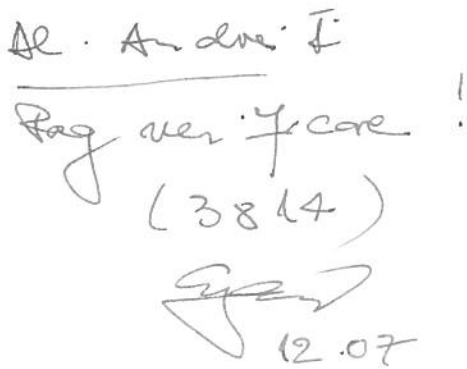 Dl. Andrei I
Rog verificare !
(3814)
12.07